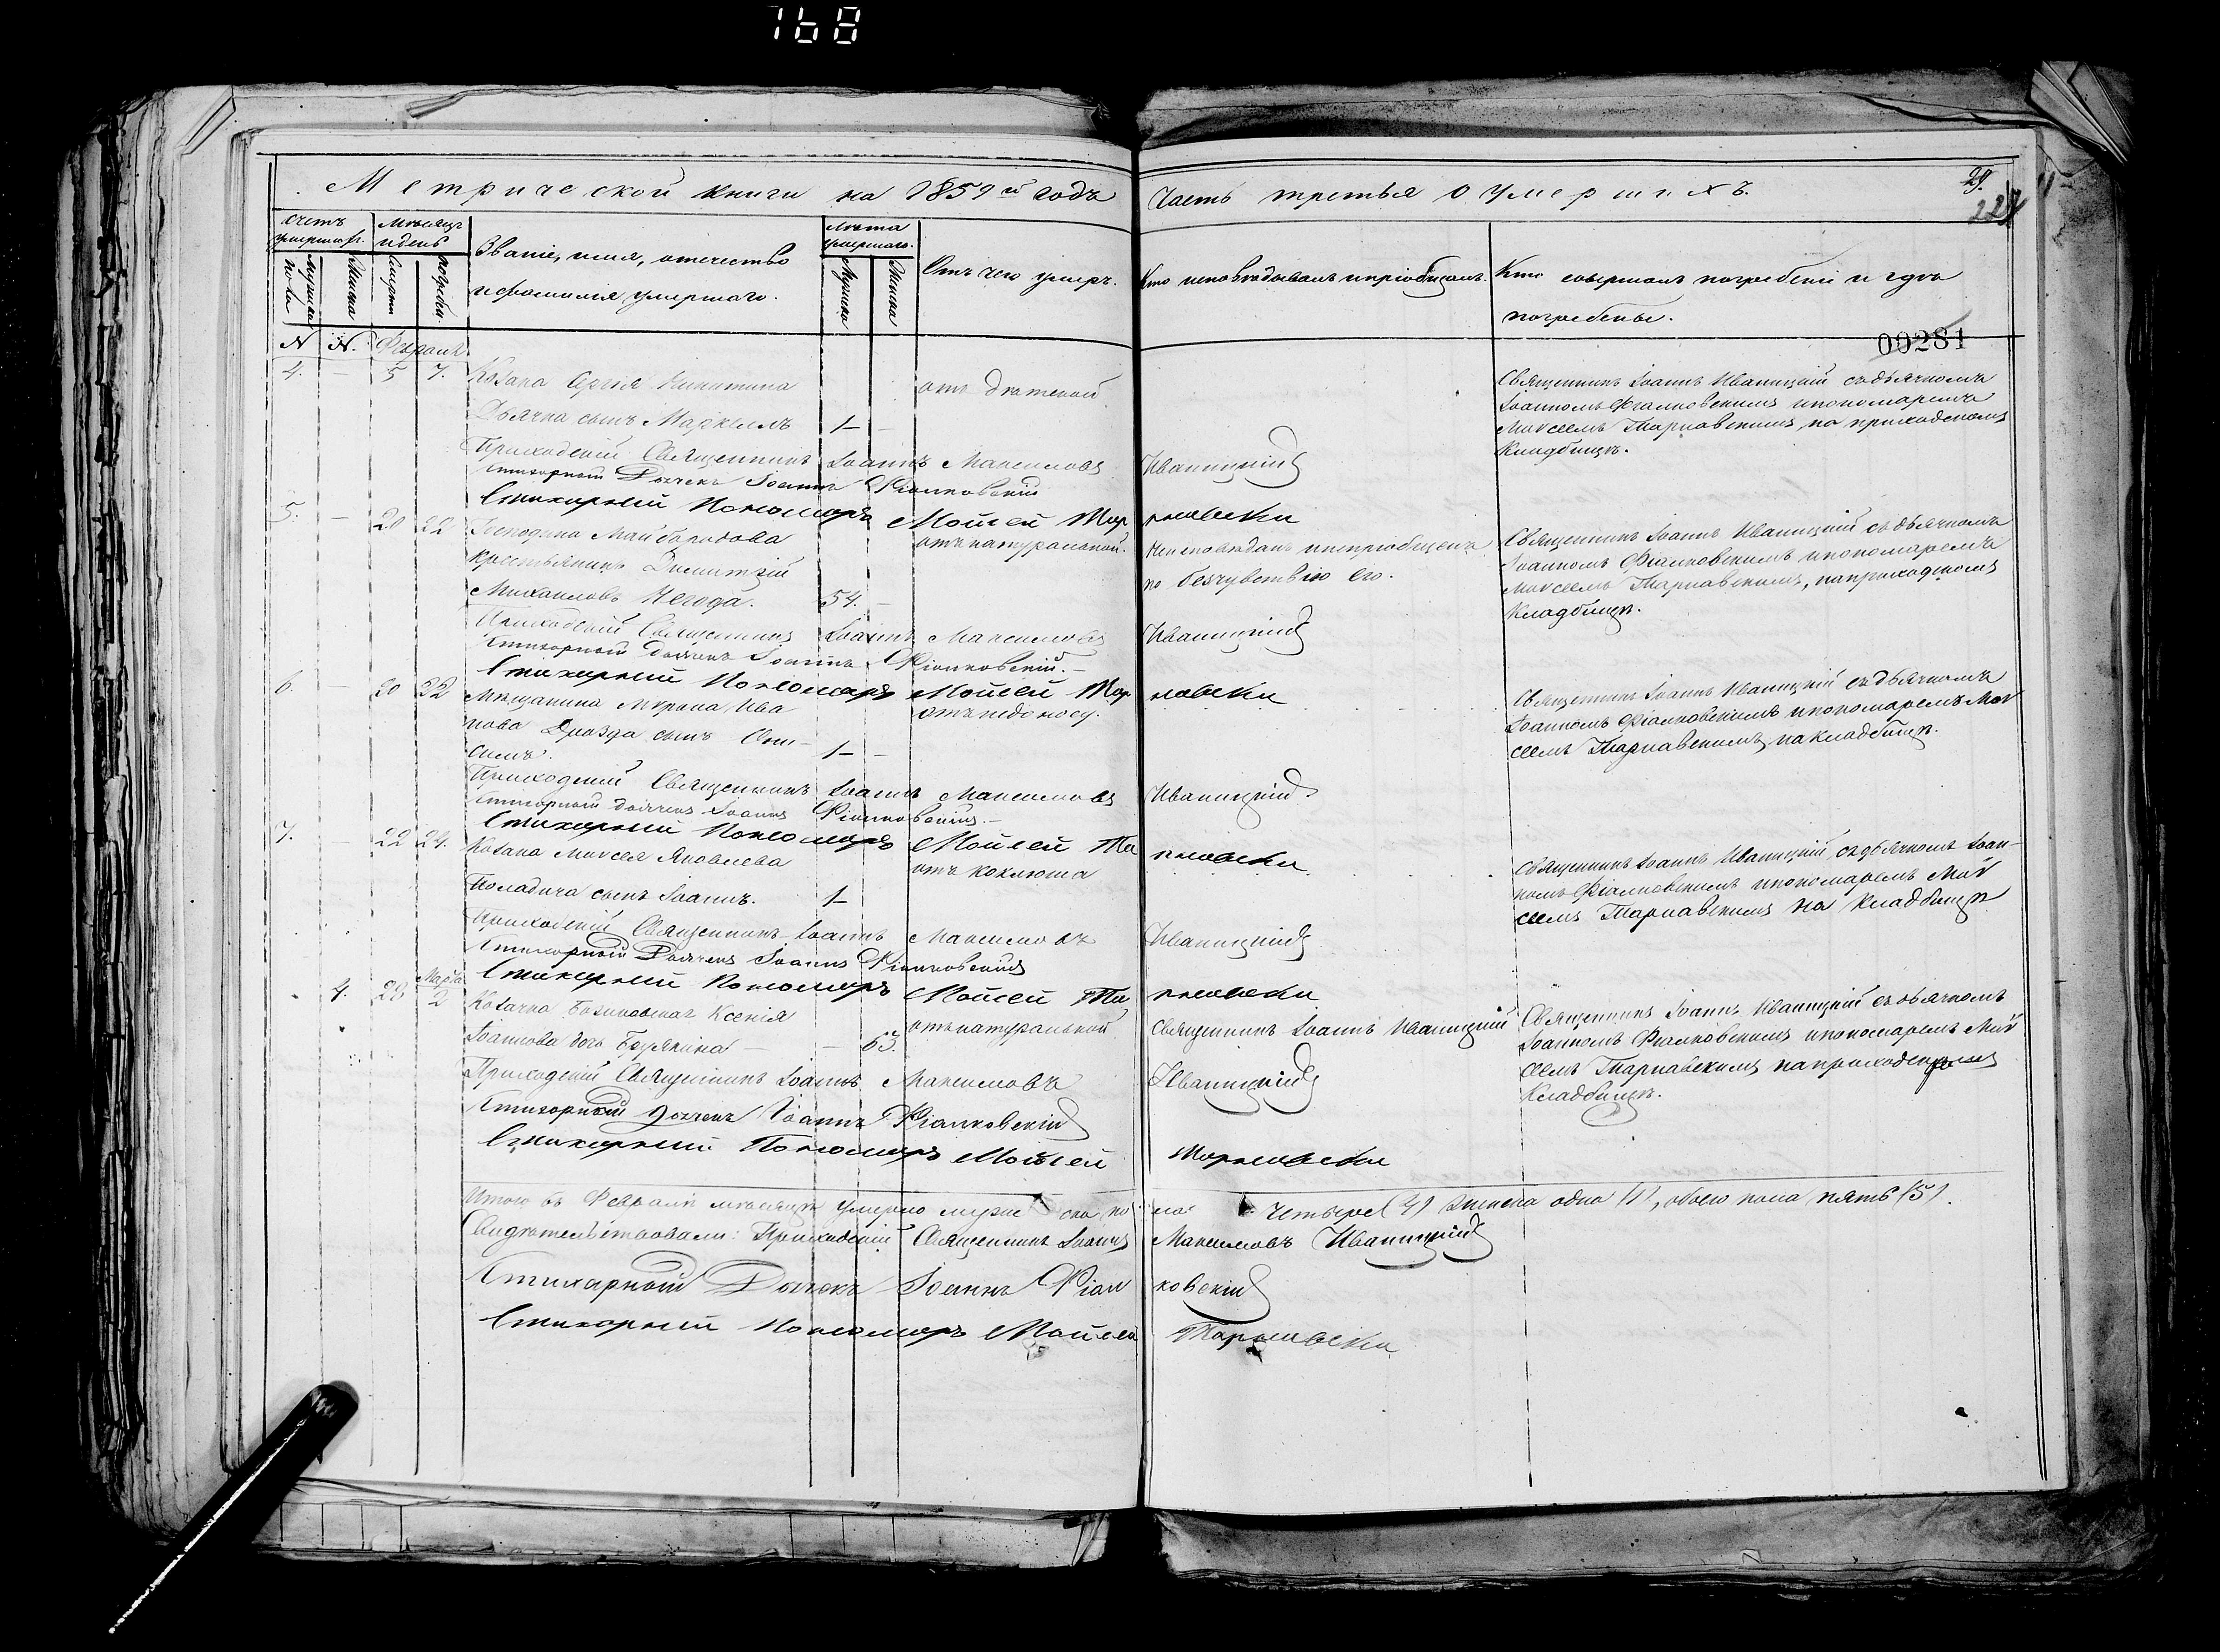 168
Метрической книги на 1859й годъ
Часть третья о умершихъ.
29.
Счетъ умершихъ.
Мѣсяцъ и день
Званіе, имя, отечество
и фамилія умершаго.
Лѣта умершаго.
Отъ чего умеръ.
Кто исповѣдывалъ и пріобщалъ.
Кто совершалъ погребеніе и гдѣ
погребены.
Мужеска пола
Женска
Смерти
погребен.
Мужеска
Женска
N N. Февраль
00281
4. — 5 7. Козака Сергія Никитина
Дьячка сынъ Маркеллъ 1 —
Священникъ Іоаннъ Иваницкій съ дьячкомъ
Іоанномъ Фіалковскимъ и пономаремъ
Моѵсеемъ Тарнавскимъ, на приходскомъ
Кладбищѣ.
Приходскій Священникъ Іоаннъ Максимовъ Иваницкій
Стихарный Дьячекъ Іоаннъ Фіалковскій
Стихарный Пономарь Мойсей Тарновски
5. — 20 22 Господина Майбородова
отъ натуральной.
крестьянинъ Димитрій
Михаиловъ Негода. 54. —
Неисповѣданъ и непріобщенъ
по безчувствію его.
Священникъ Іоаннъ Иваницкій съ дьячкомъ
Іоанномъ Фіалковскимъ и пономаремъ
Моѵсеемъ Тарнавскимъ, на приходскомъ
Кладбищѣ.
Приходскій Священникъ Іоаннъ Максимовъ Иваницкій
Стихарный Дьячекъ Іоаннъ Фіалковскій. —
Стихарный Пономарь Мойсей Тарновски
6. — 20 22 Мѣщанина Мирона Ива
нова Дрозда сынъ Они-
симъ. 1 —
Священникъ Іоаннъ Иваницкій съ дьячкомъ
Іоанномъ Фіалковскимъ и пономаремъ Моѵ
сеемъ Тарнавскимъ, на кладбищѣ.
Приходскій Священникъ Іоаннъ Максимовъ Иваницкій
Стихарный Дьячекъ Іоаннъ Фіалковскій. —
Стихарный Пономарь Мойсей Тарновски
7. — 22 24. Козака Моѵсея Яковлева
отъ коклюша
сынъ Іоаннъ. 1
Священникъ Іоаннъ Иваницкій, съ дьячкомъ Іоан-
номъ Фіалковскимъ и пономаремъ Моѵ
сеемъ Тарнавскимъ на кладбищѣ
Приходскій Священникъ Іоаннъ Максимовъ Иваницкій
Стихарный Дьячекъ Іоаннъ Фіалковскій
Стихарный Пономарь Мойсей Тарновски
4. 28 Марта 2 Козачка Ксенія
отъ натуральной
Іоаннова дочь — — 63.
Священникъ Іоаннъ Иваницкій
Священникъ Іоаннъ Иваницкій съ дьячкомъ
Іоанномъ Фіалковскимъ и пономаремъ Моѵ
сеемъ Тарнавскимъ на приходскомъ
Кладбищѣ.
Приходскій Священникъ Іоаннъ Максимовъ Иваницкій
Стихарный Дьячекъ Іоаннъ Фіалковскій
Стихарный Пономарь Мойсей Тарновски
Итого въ Февралѣ мѣсяцѣ умерло мужеска пола четыре (4) женска одна (1), обоего пола пять (5).
Свидѣтельствовали: Приходскій Священникъ Іоаннъ Максимовъ Иваницкій
Стихарный Дьячекъ Іоаннъ Фіалковскій
Стихарный Пономарь Мойсей Тарновски